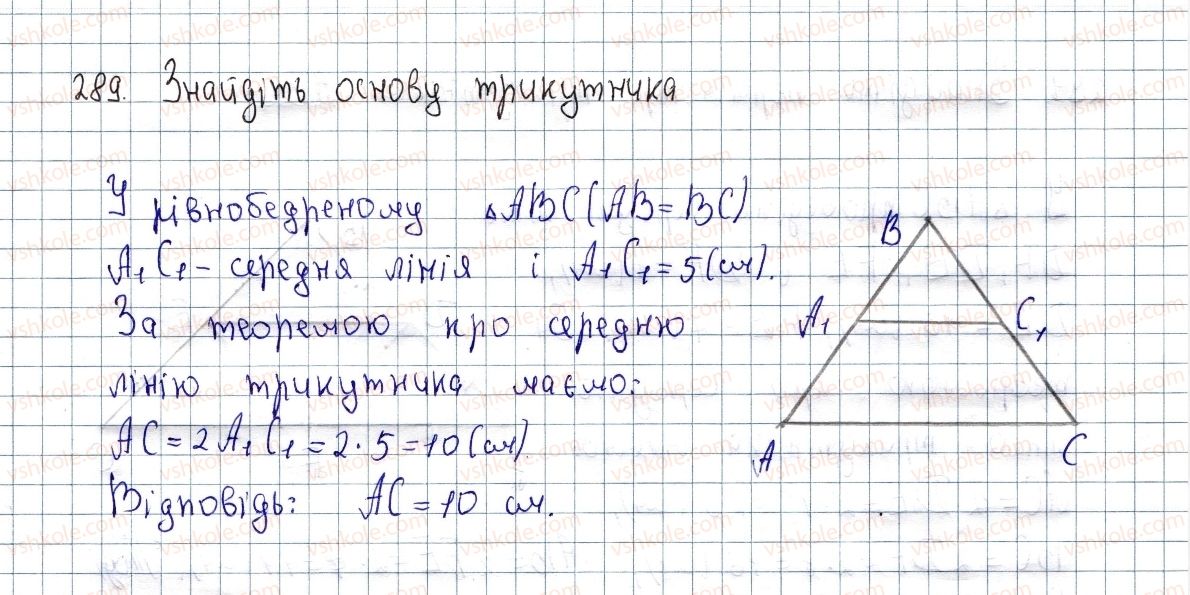 289. Знайдіть основу трикутника
У рівнобедреному △ABC (AB = BC)
A₁C₁ – середня лінія і A₁C₁ = 5 (см).
За теоремою про середню
лінію трикутника маємо:
AC = 2A₁C₁ = 2 · 5 = 10 (см)
Відповідь: AC = 10 см.
B
A₁ C₁
A C